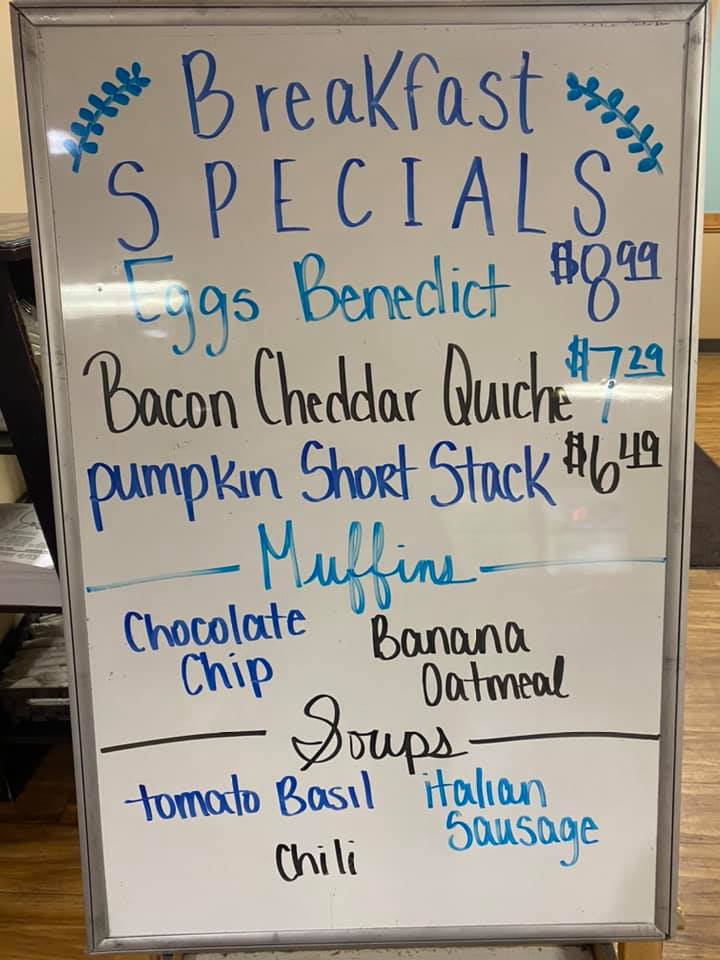 Breakfast
SPECIALS
Eggs Benedict $8.99
Bacon Cheddar Quiche $7.29
pumpkin Short Stack $6.49
Muffins
Chocolate Chip
Banana Oatmeal
Soups
tomato Basil
italian Sausage
Chili